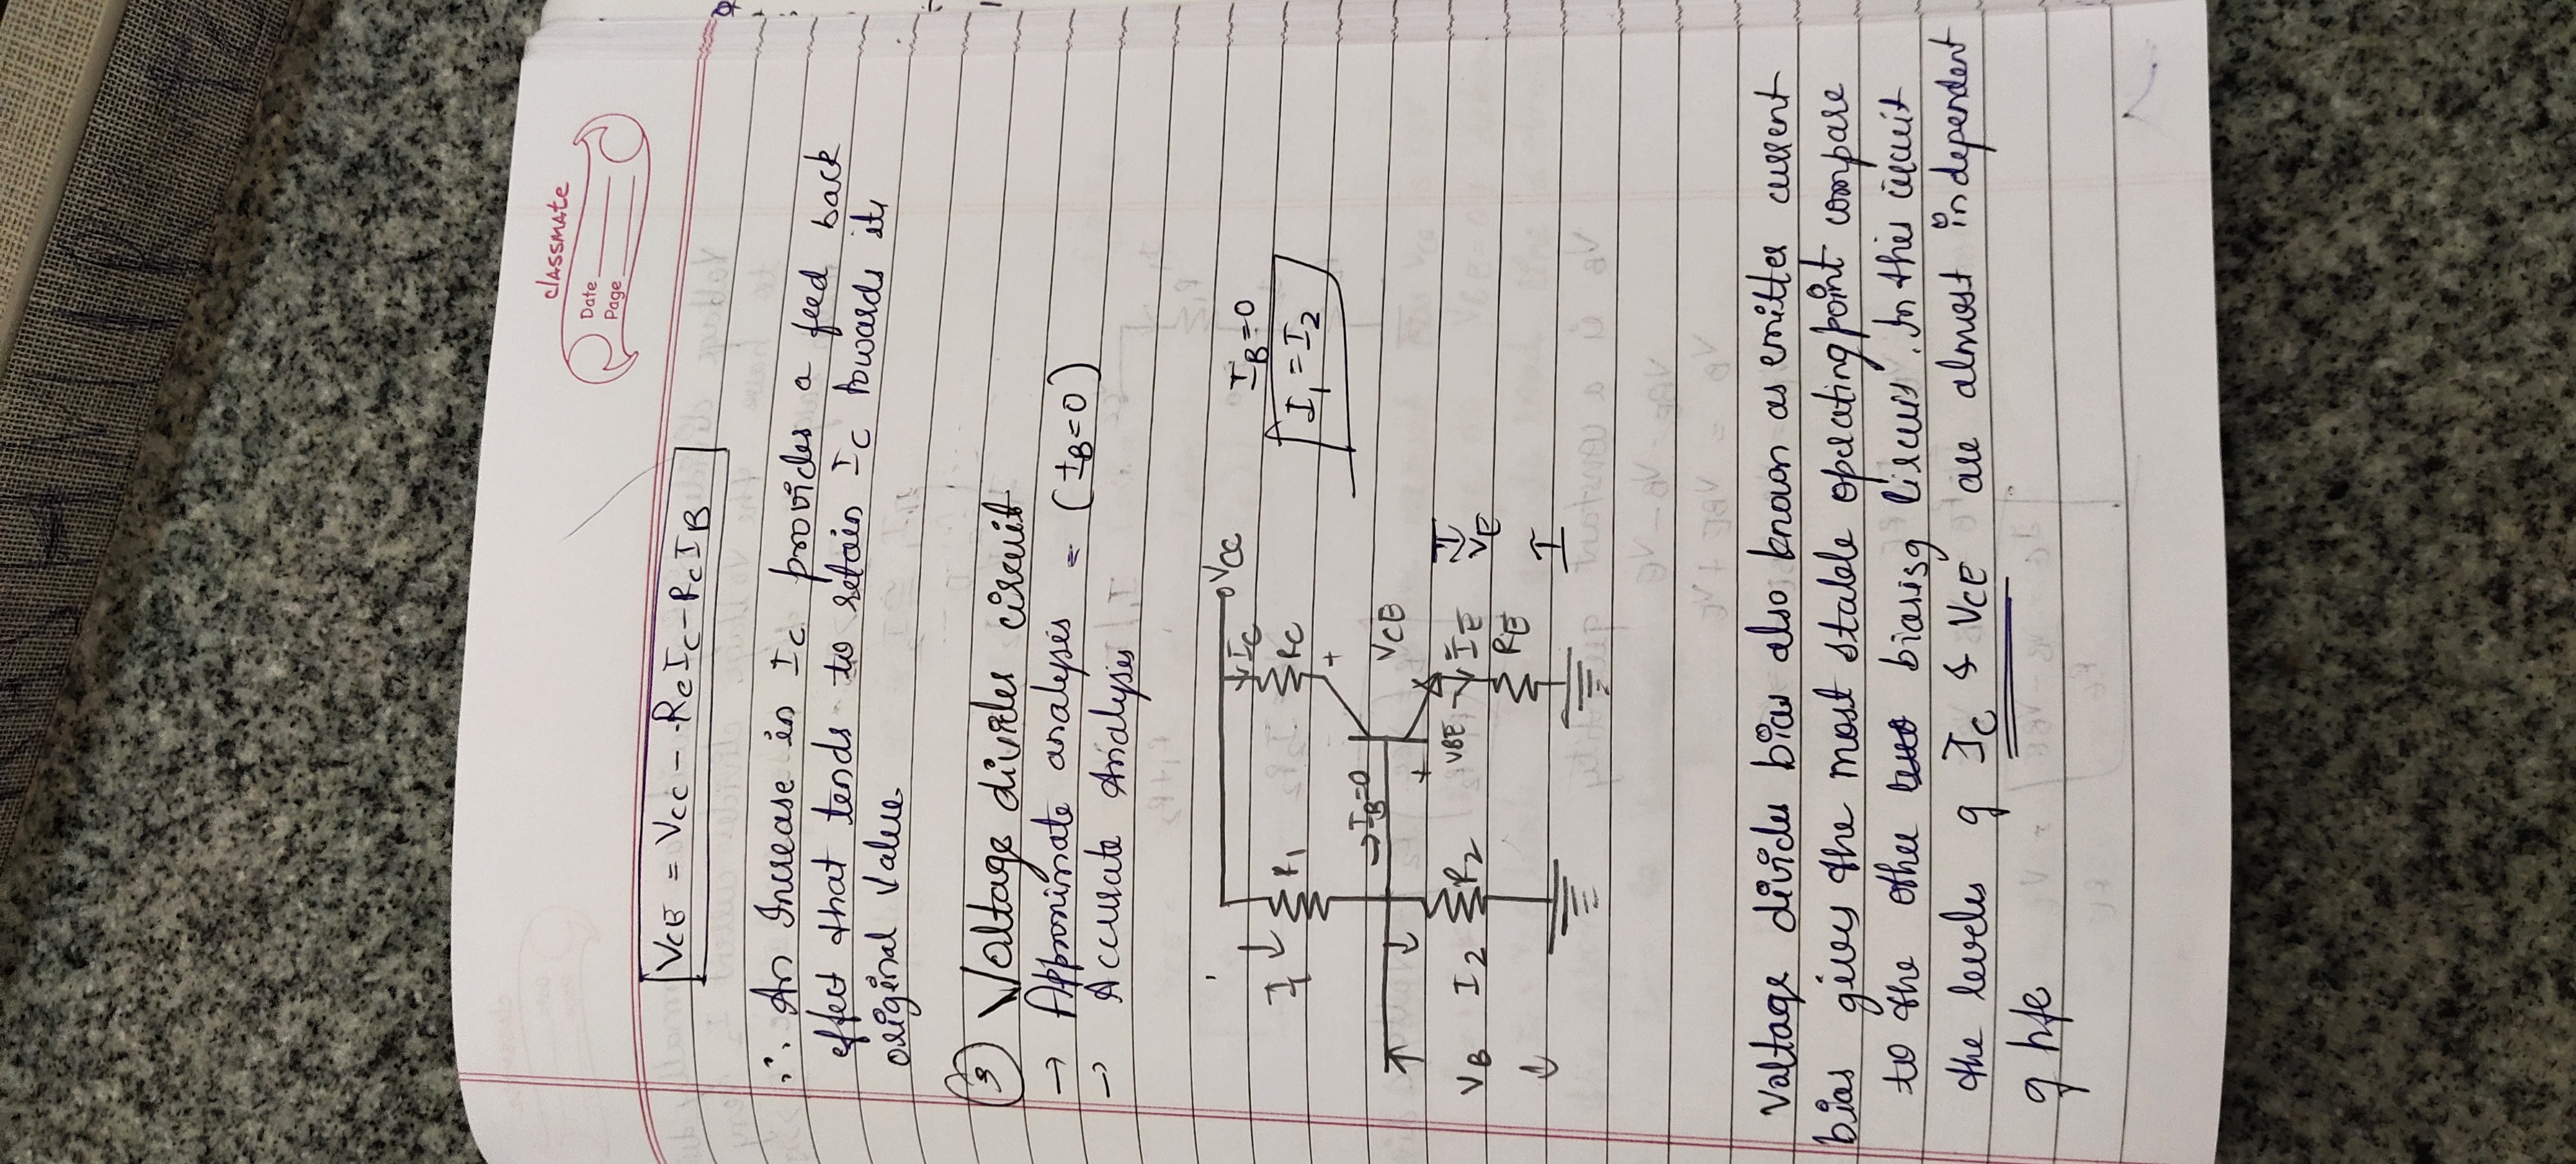 KASHMIR
classmate
Date
Page
VCE = VCC - RCIC - RCIB
∴ An Increase in IC provides a feed back
effect that tends to retain IC towards its
original value.
③ Voltage divider circuit
→ Approximate analysis = (IB=0)
→ Accurate Analysis
VCC
IC
IB=0
I1
R1
RC
I1 = I2
+
→IB=0
VCE
+
VBE -
IE
VE
VB
I2
R2
RE
Voltage divider bias also known as emitter current
bias gives the most stable operating point compare
to the other biasing circuis. In this circuit
the levels of IC & VCE are almost independent
of hfe